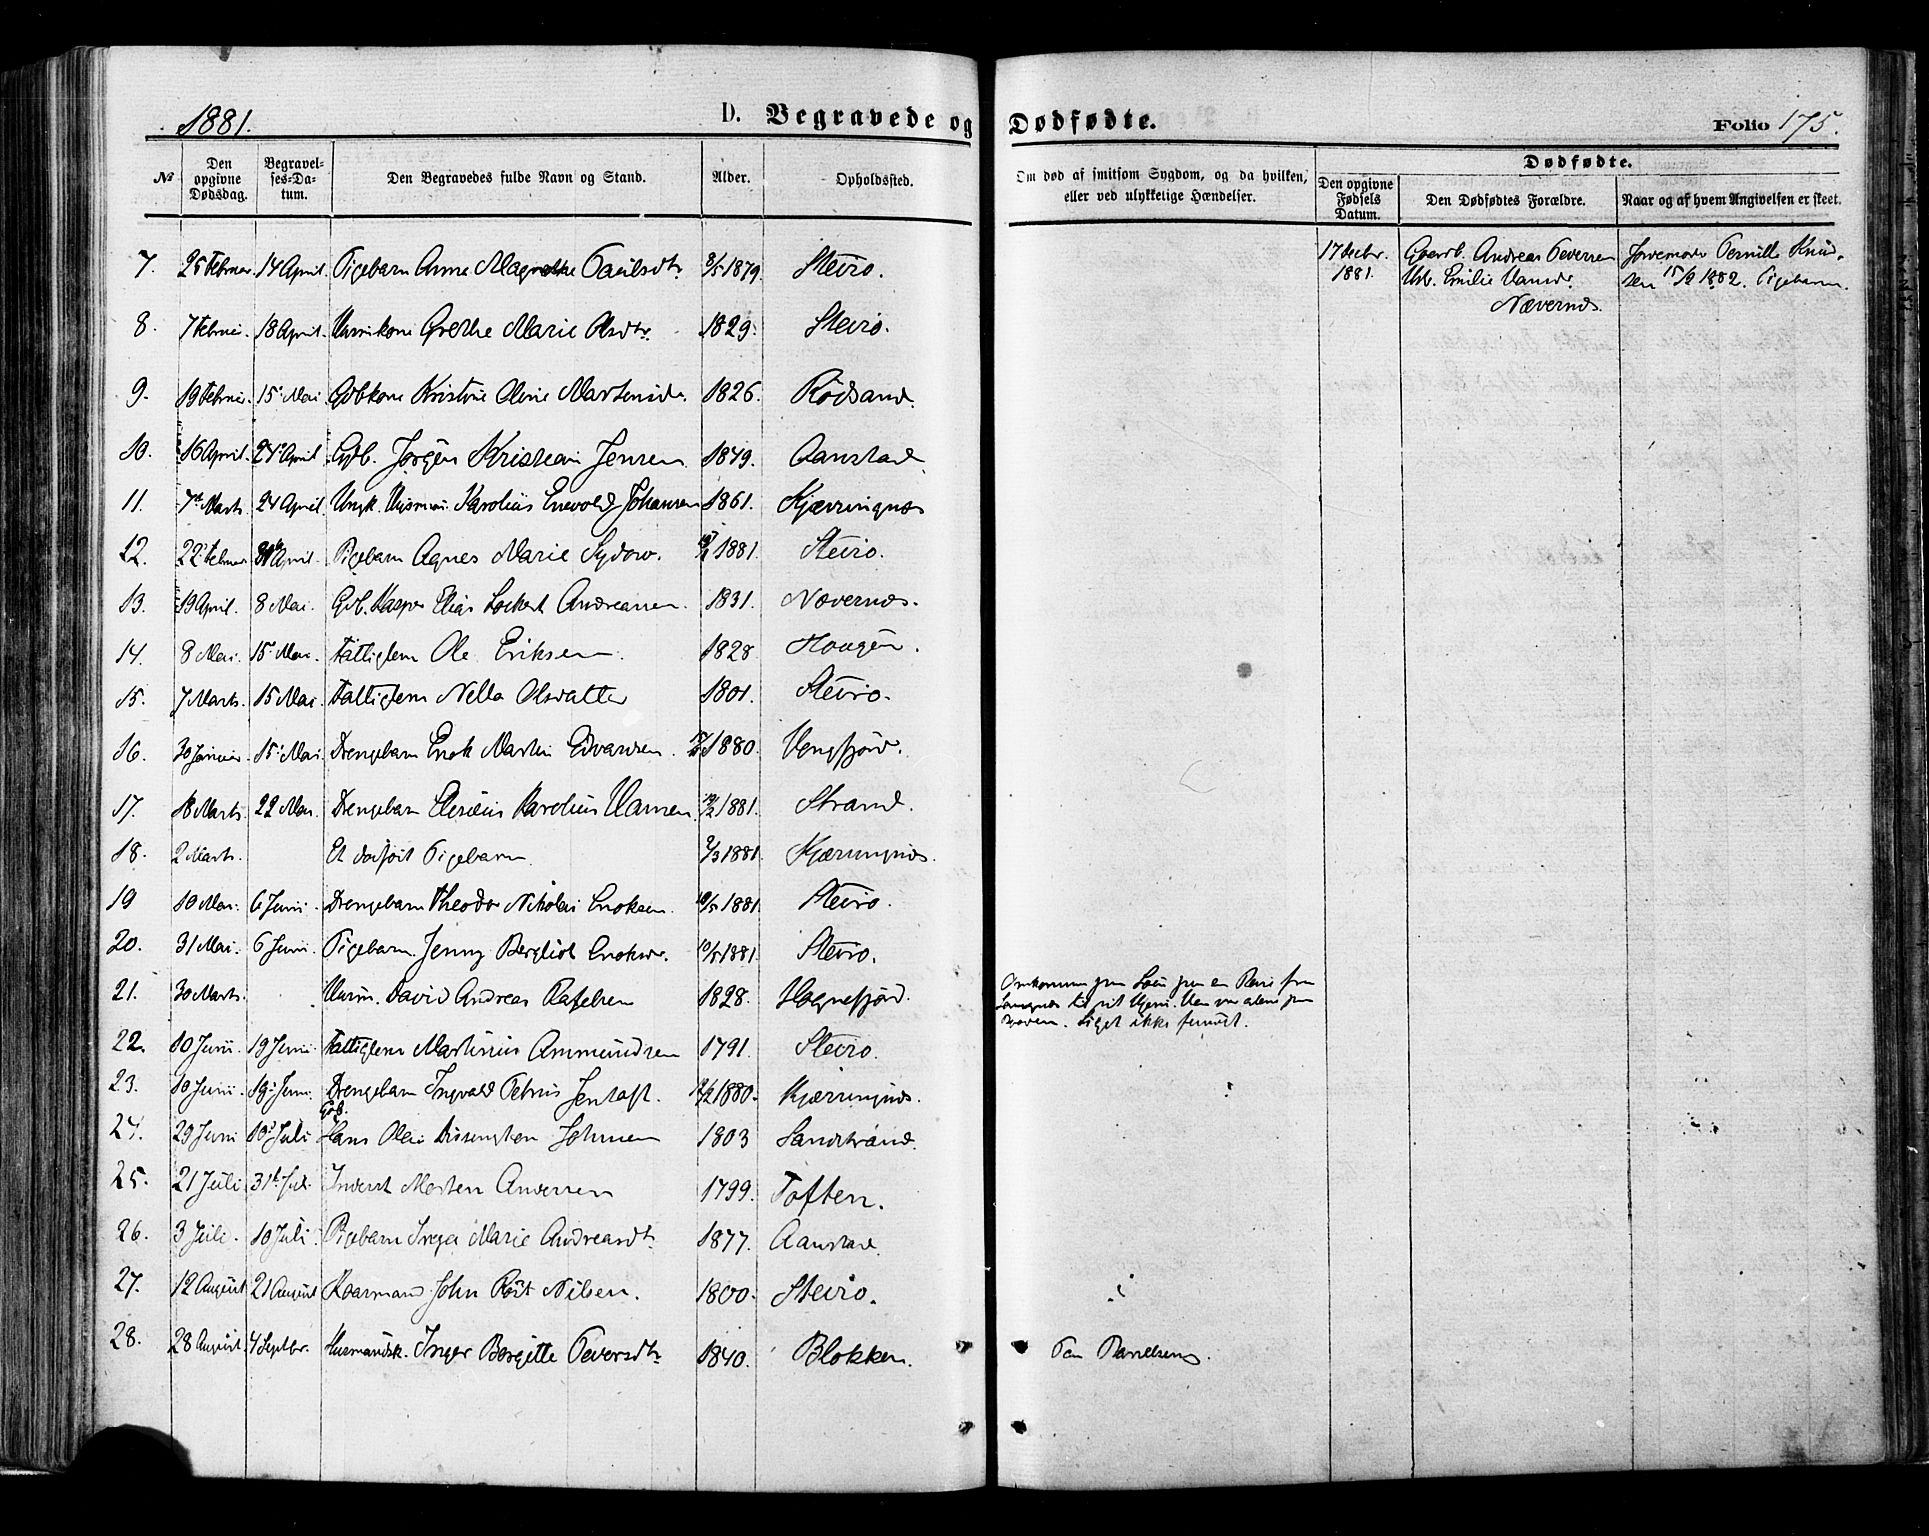 1881.
D. Begravede og Dødfødte.
Folio 175.
№
Den opgivne Dødsdag.
Begravelses-Datum.
Den Begravedes fulde Navn og Stand.
Alder.
Opholdssted.
Om død af smitsom Sygdom, og da hvilken,
eller ved ulykkelige Hændelser.
Dødfødte.
Den opgivne Fødsels Datum.
Den Dødfødtes Forældre.
Naar og af hvem Angivelsen er skeet.
7. 25 Februar. 14 April. Pigebarn Anne Magrethe Paulsdtr 3/5 1879. Steiro.
17 Decbr. 1881.
Andreas Pedersen
Emilie Hansd.
Nævernes.
Jordemoder Pernille Knud-
sen 15/2 1882. Pigebarn.
8. 7 Februar. 18 April. Grethe Marie Olsdtr. 1829. Steiro.
9. 19 Februar. 15 Mai Gbkone Kristine Oline Martensdr. 1826. Rødsand.
10. 16 April. 24 April Gdb. Jørgen Kristian Jensen 1849. Aanstad.
11. 7 Marts. 24 April. Ungk. Karolius Enevold Johansen 1861. Kjærringnes
12. 22 Februar April. Pigebarn Agnes Marie Sydow. 1881. Steiro.
13. 19 April. 8 Mai. Gdb. Kasper Elias Lockert Andreassen. 1831. Nævernes.
14. 8 Mai. 15 Mai. Fattiglem Ole Eriksen. 1828 Haugen.
15. 7 Marts. 15 Mai. Fattiglem Nella Olsdatter 1801. Steiro.
16. 30 Januar. 15 Mai Drengebarn Enok Martin Edvardsen. 1880. Hengfjord.
17. 18 Marts. 22 Mai. Drengebarn Eliseus Karolius Hansen. 1881. Strand.
18. 2 Marts. Et dødfødt Pigebarn 2/3 1881. Kjærringnes.
19 10 Mai. 6 Juni. Drengebarn Theodor Nikolai Enoksen. 10/5 1881. Steiro.
20. 31 Mai. 6 Juni. Pigebarn Jenny Bergliot Enoksdr. 10/5 1881. Steiro.
21. 30 Marts. Husm. David Andreas Rafelsen 1828. Hognefjord.
Omkommen paa Søen paa en Reise fra
til sit Hjem. Han var alene paa
Liget ikke fundet.
22. 10 Juni. 19 Juni Fattiglem Martinius Ammundsen 1791. Steiro.
23. 10 Juni. 19 Juni. Drengebarn Ingvald Petrus Jentoft. 1880. Kjærringnes.
24. 29 Juni 10 Juli Gdb. Hans Olai Johnsen 1803 Sandstrand.
25. 21 Juli 31 Jul. Inderst Morten Andersen 1799. Toften.
26. 3 Juli. 10 Juli. Pigebarn Inger Marie Andreasdtr 1877. Aanstad.
27. 12 August 21 August Kaarmand John Røst Nilsen. 1800. Steiro.
28. 28 August. 4 Septbr. Husmandsk. Inger Bergitte Pedersdtr 1840. Blokken.